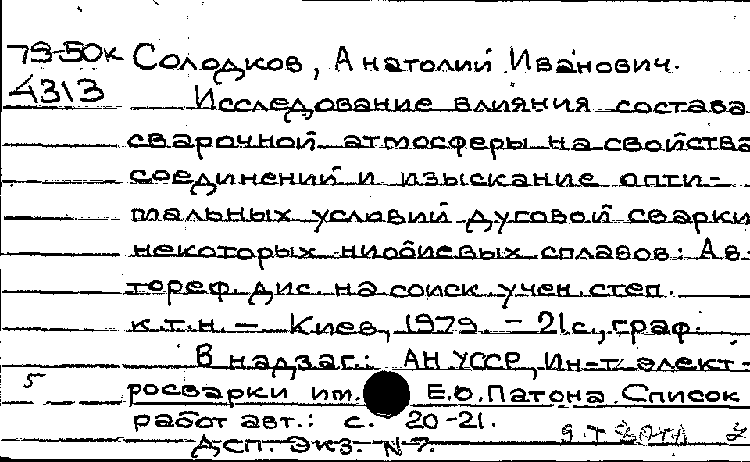 79-50к Солодков, Анатолий Иванович.
4313 Исследование влияния состава
сварочной атмосферы на свойства
соединений и изыскание опти-
мальных условий дуговой сварки
некоторых ниобиевых сплавов: Ав-
тореф. дис. на соиск учен. степ.
к.т.н. — Киев, 1979. - 21 с., граф.
В надзаг.: АН УССР, Ин-т элект-
5 росварки им. Е.О. Патона. Список
работ авт.: с. 20-21.
ДСП. Экз. N 7.